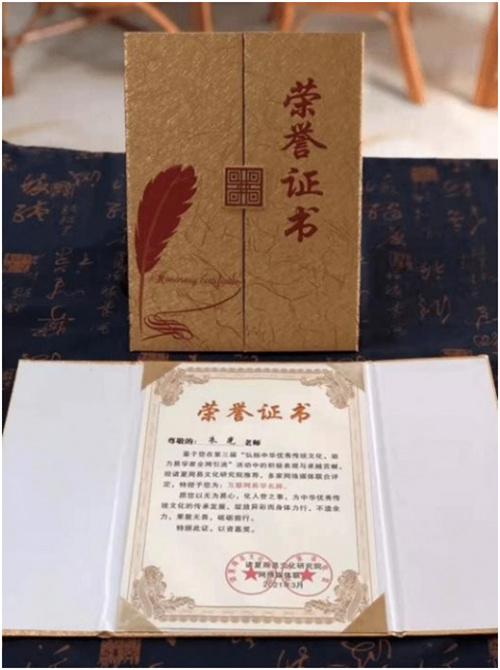 荣誉证书
Honorary Certificate
荣誉证书
尊敬的: 朱光 老师
鉴于您在第三届“弘扬中华优秀传统文化、助
力易学家全网引流”活动中的积极表现与卓越贡献,
经诸夏周易文化研究院推荐,多家网络媒体联合评
定,特授予您为:互联网易学名师。
愿您以无为易心,化人世之事,为中华优秀传
统文化的传承发展、绽放异彩而身体力行、不遗余
力,果敢无畏,砥砺前行。
特颁此证,以资嘉奖。
诸夏周易文化研究院
网络媒体联
2021年3月